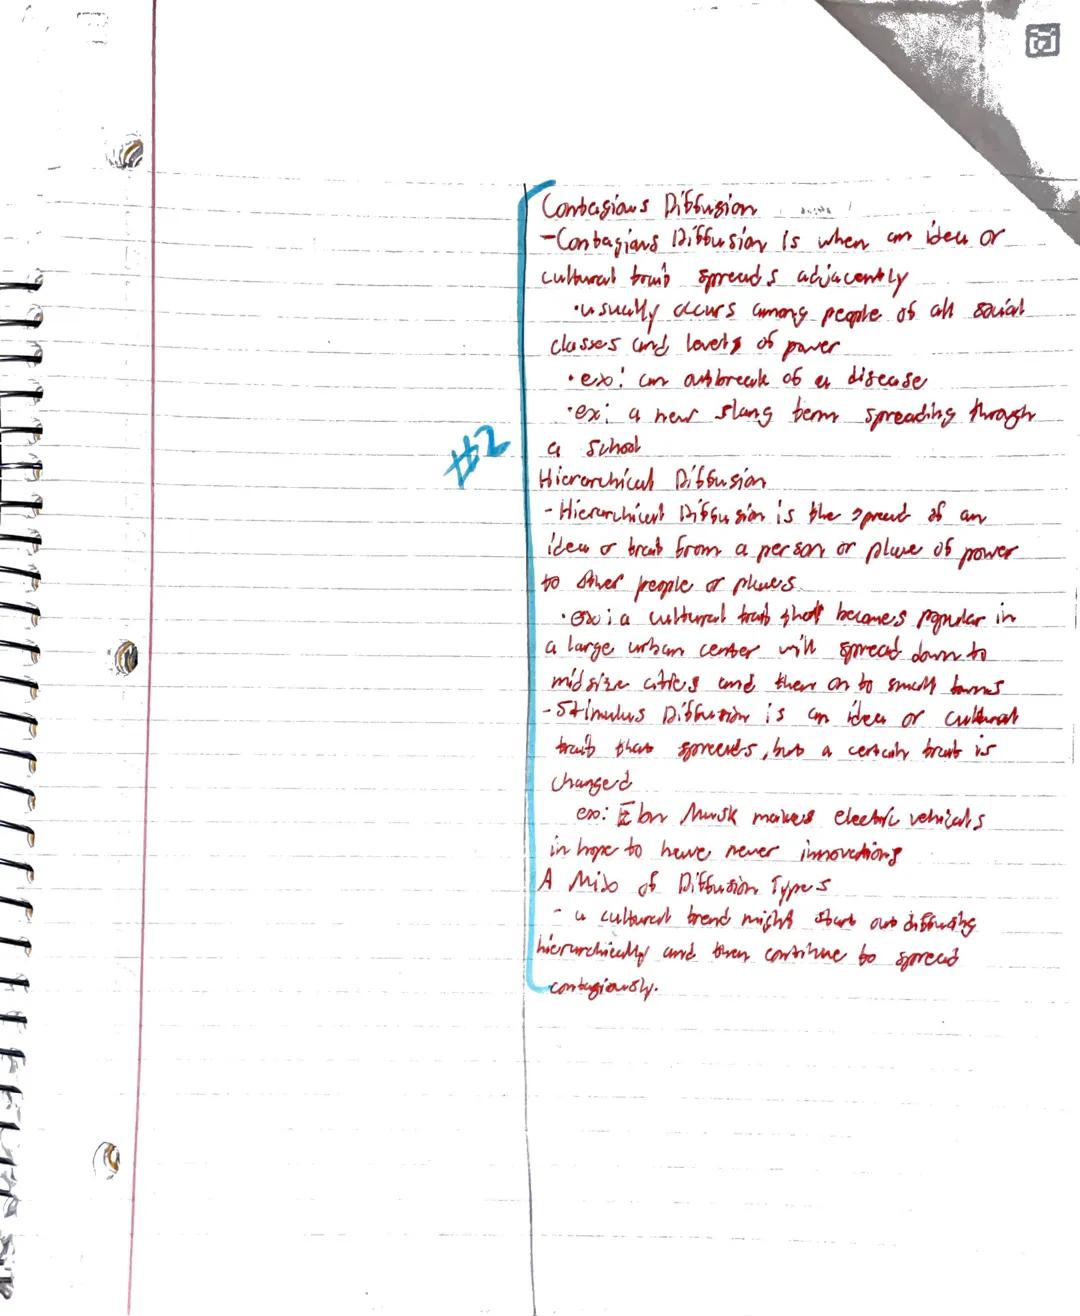 Contagious Diffusion
-Contagious Diffusion is when an idea or
cultural trait spreads adjacently
•usually occurs among people of all social
classes and levels of power
•ex: an outbreak of a disease
•ex: a new slang term spreading through
a school
#2
Hierarchical Diffusion
-Hierarchical Diffusion is the spread of an
idea or trait from a person or place of power
to other people or places
•ex: a cultural trait that becomes popular in
a large urban center will spread down to
midsize cities and then on to small towns
-Stimulus Diffusion is an idea or cultural
trait that spreads, but a certain trait is
changed
ex: Elon Musk makes electric vehicals
in hope to have newer innovations
A Mix of Diffusion Types
- a cultural trend might start out diffusing
hierarchically and then continue to spread
contagiously.